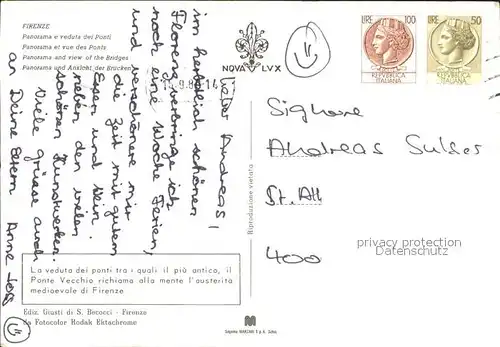 FIRENZE
Panorama e veduta dei Ponti
Panorama et vue des Ponts
Panorama and view of the Bridges
Panorama und Ansicht der Brücken
NOVA LVX
LIRE 100
REPVBBLICA
ITALIANA
LIRE 50
REPVBBLICA
ITALIANA
Lieber Andreas!
im herbstlich schönen
Florenz verbringe ich
noch eine Woche Ferien,
und verschönere mir
die Zeit mit gutem
Essen und Wein.
neben den vielen
schönen Kunstwerken.
Viele grüsse auch
an Deine Eltern Anne
Signore
Andreas Sulser
St.
400
Riproduzione vietata
privacy protection
Datenschutz
La veduta dei ponti tra i quali il più antico, il
Ponte Vecchio richiama alla mente l'austerità
medioevale di Firenze
Ediz. Giusti di S. Becocci - Firenze
da Fotocolor Kodak Ektachrome